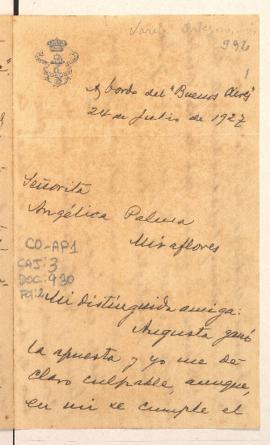 Varela Orbegoso
996
1
A bordo del "Buenos Aires"
24 de Julio de 1927
Señorita
Angélica Palma
Miraflores
CO-AP1
CAJ: 3
DOC: 930
FOL:
Mi distinguida amiga:
Augusta ganó
la apuesta y yo me de-
claro culpable, aunque,
en mi se cumple el